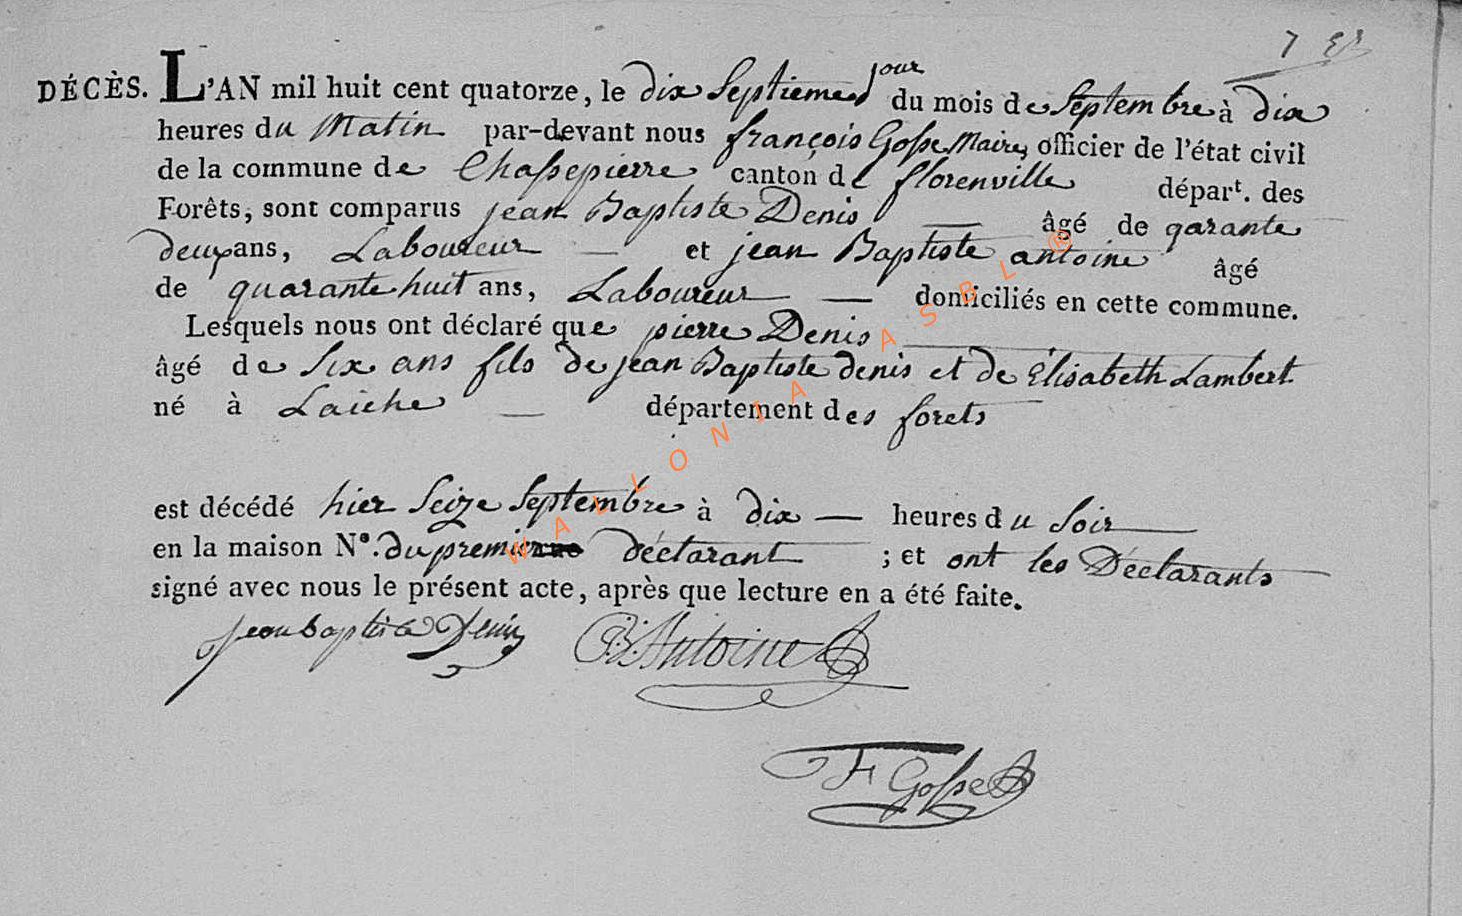 DÉCÈS. L'AN mil huit cent quatorze, le dix Septieme jour du mois de Septembre à dix
heures du Matin par-devant nous françois Gosse Maire, officier de l'état civil
de la commune de Chassepierre canton de florenville départ. des
Forêts, sont comparus jean Baptiste Denis — âgé de qarante
deux ans, Laboureur — et jean Baptiste antoine âgé
de quarante huit ans, Laboureur — domiciliés en cette commune.
Lesquels nous ont déclaré que pierre Denis
âgé de six ans fils de jean Baptiste denis et de Élisabeth Lambert
né à Laiche — département des forets
est décédé hier Seize Septembre à dix — heures du Soir
en la maison N°. du premier déclarant ; et ont les Déclarants
signé avec nous le présent acte, après que lecture en a été faite.
jean baptiste Denis JB Antoine
F Gosse
WALLONIA ASBL ®